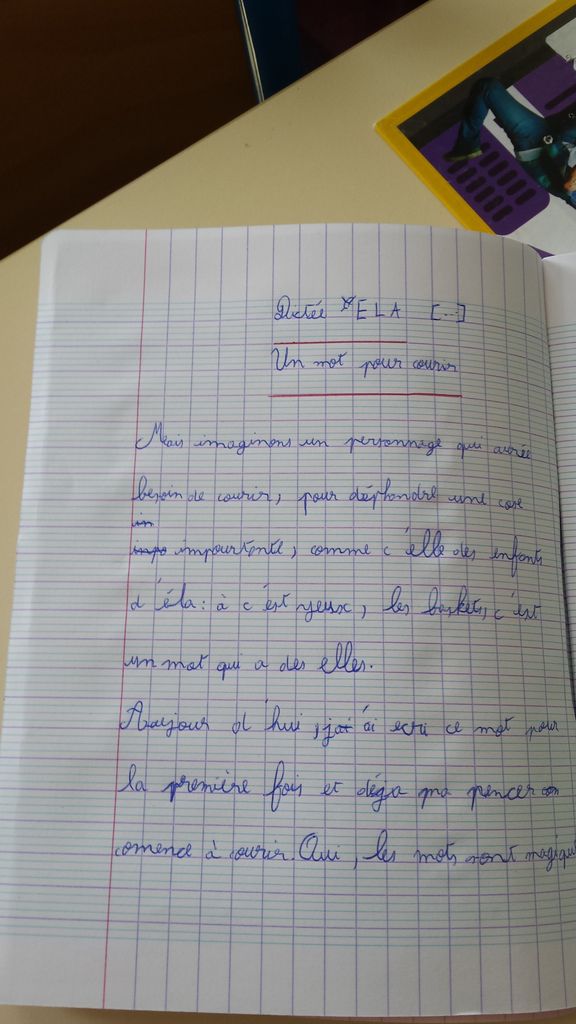 Dictée ELA [...]
Un mot pour courir
Mais imaginons un personnage qui aurée
besoin de courir, pour déphandre une cose
impourtente, comme c'elle des enfants
d'éla: à c'est yeux, les baskets, c'est
un mot qui a des elles.
d'hui, j'ai ecri ce mot pour
la première fois et déga ma pencer
comence à courir. Oui, les mots sont magiqu